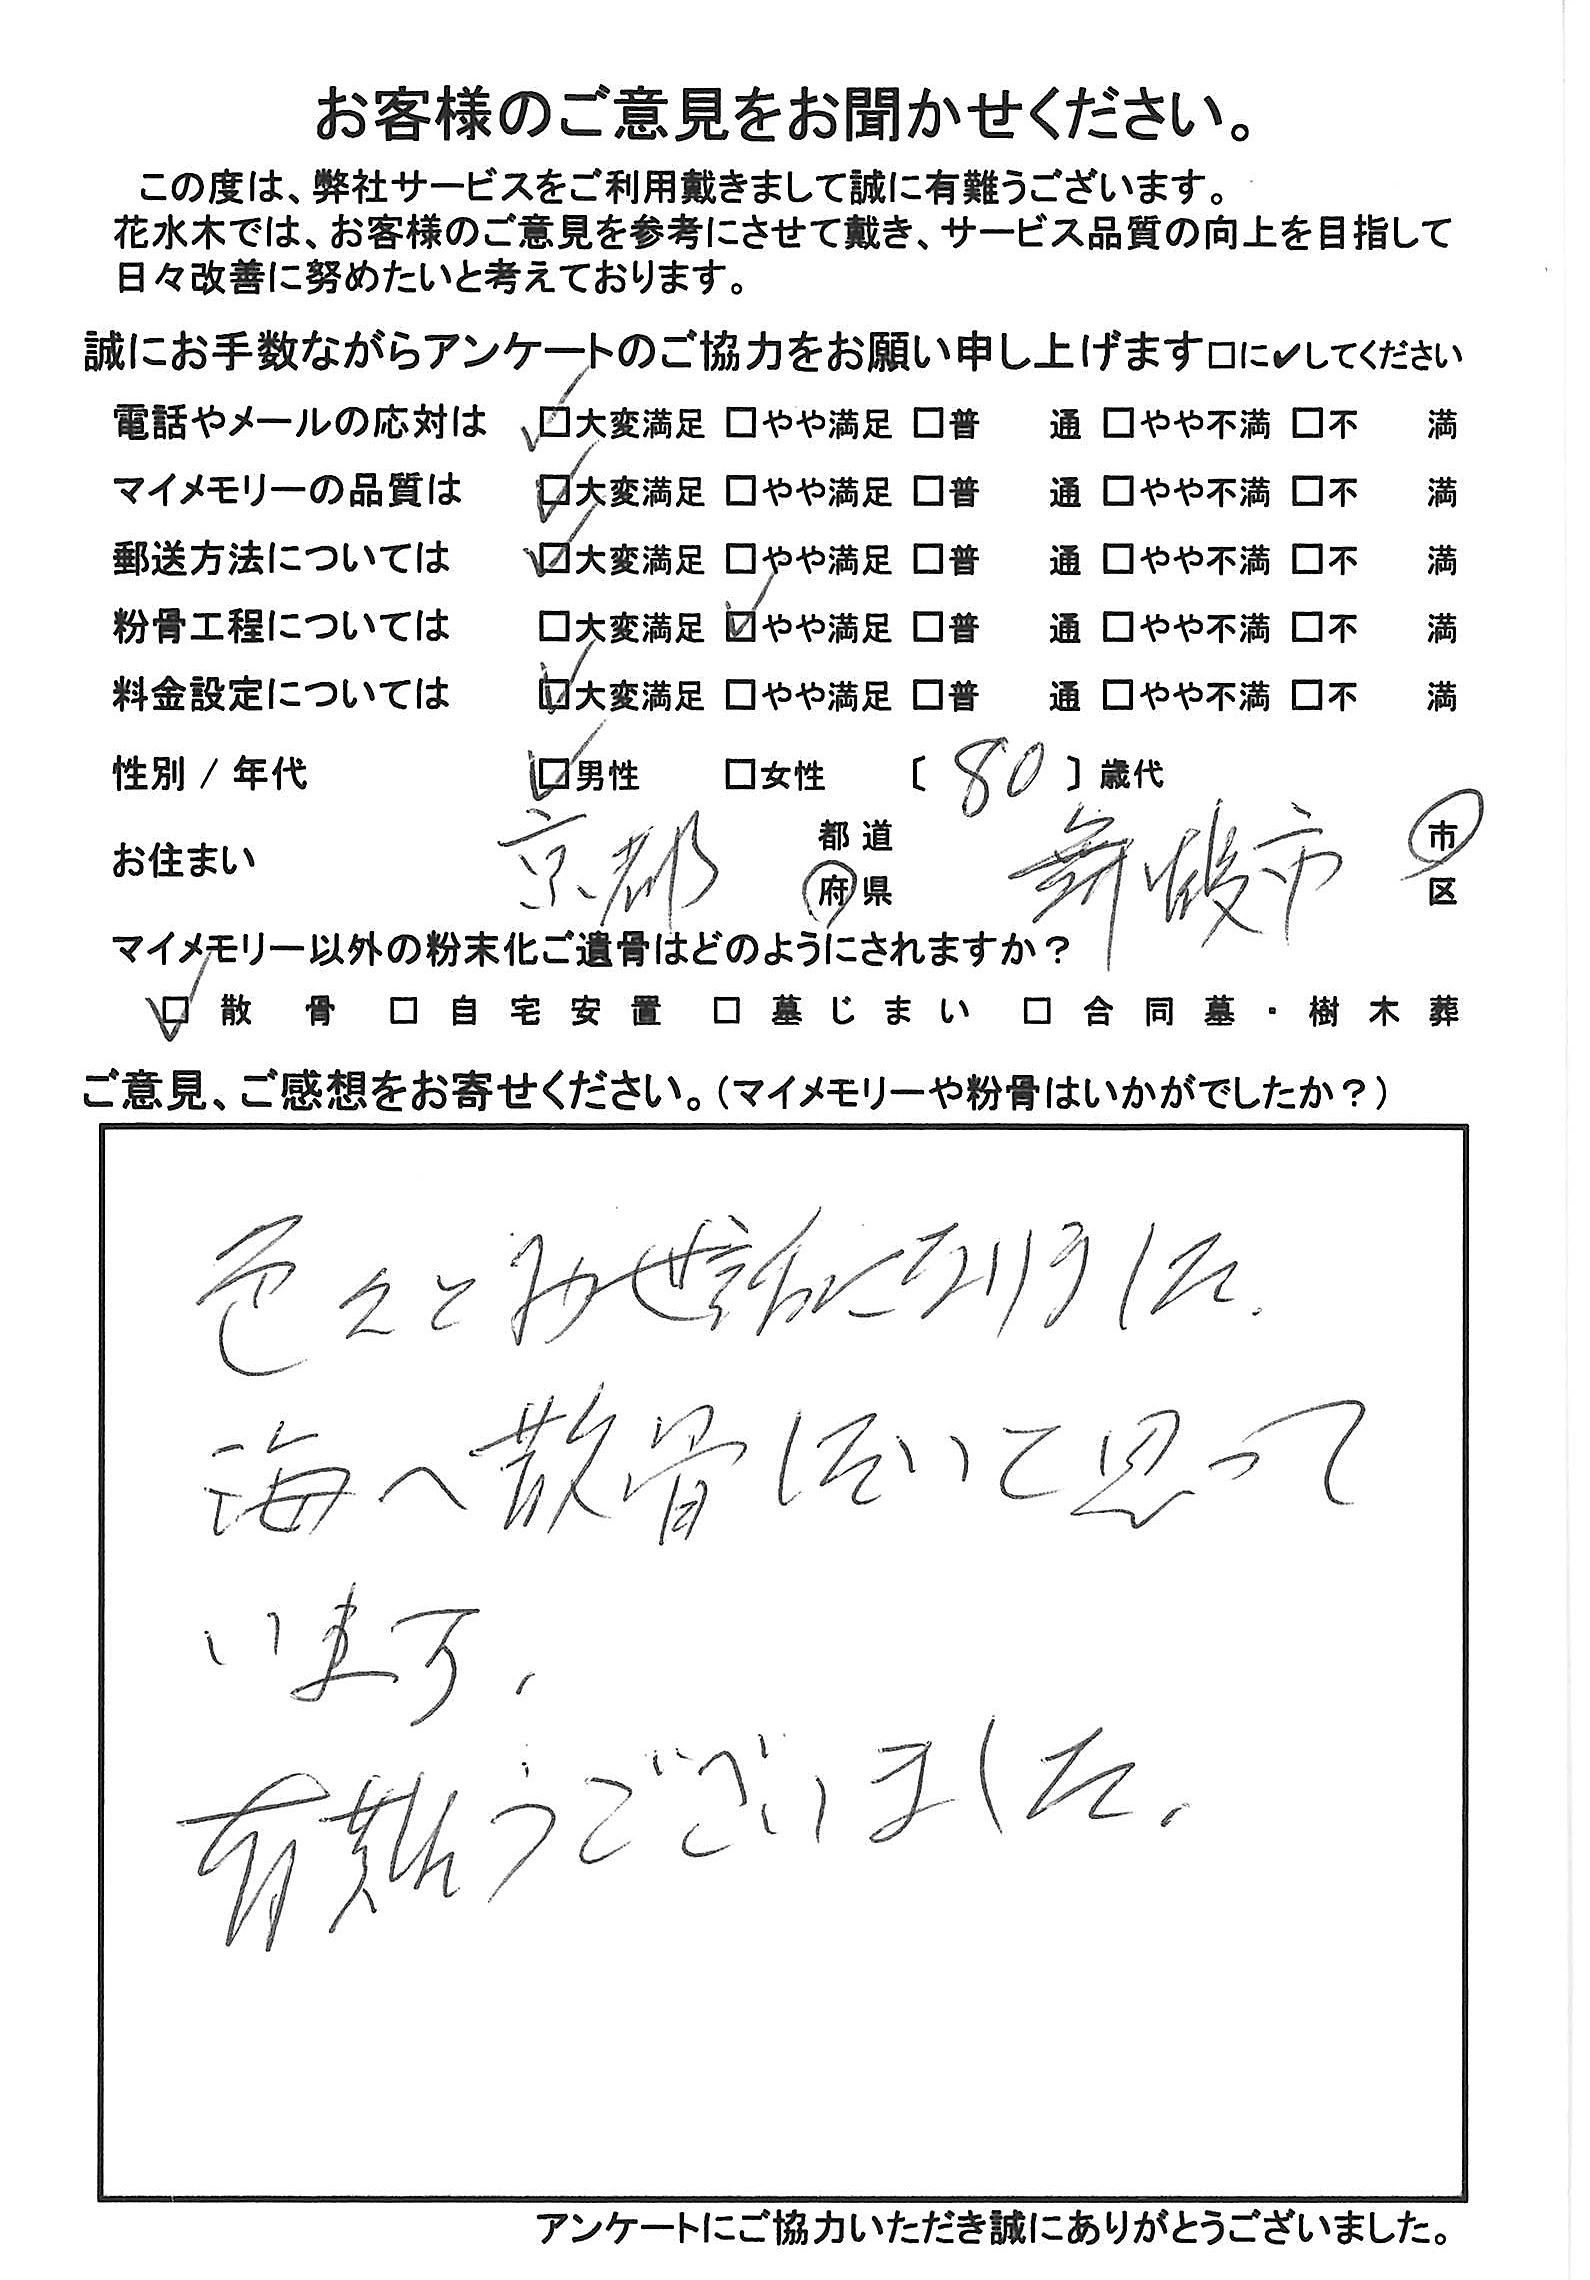 お客様のご意見をお聞かせください。
この度は、弊社サービスをご利用戴きまして誠に有難うございます。
花水木では、お客様のご意見を参考にさせて戴き、サービス品質の向上を目指して
日々改善に努めたいと考えております。
誠にお手数ながらアンケートのご協力をお願い申し上げます□に✔してください
電話やメールの応対は ☑大変満足 □やや満足 □普 通 □やや不満 □不 満
マイメモリーの品質は ☑大変満足 □やや満足 □普 通 □やや不満 □不 満
郵送方法については ☑大変満足 □やや満足 □普 通 □やや不満 □不 満
粉骨工程については □大変満足 ☑やや満足 □普 通 □やや不満 □不 満
料金設定については ☑大変満足 □やや満足 □普 通 □やや不満 □不 満
性別 / 年代 ☑男性 □女性 〔 80 〕歳代
お住まい 京都 都道府県 舞鶴市 市区
マイメモリー以外の粉末化ご遺骨はどのようにされますか?
☑ 散骨 □ 自宅安置 □ 墓じまい □ 合同墓・樹木葬
ご意見、ご感想をお寄せください。(マイメモリーや粉骨はいかがでしたか?)
色々とお世話になりました.
海へ散骨したいと思って
います.
有難うございました.
アンケートにご協力いただき誠にありがとうございました。